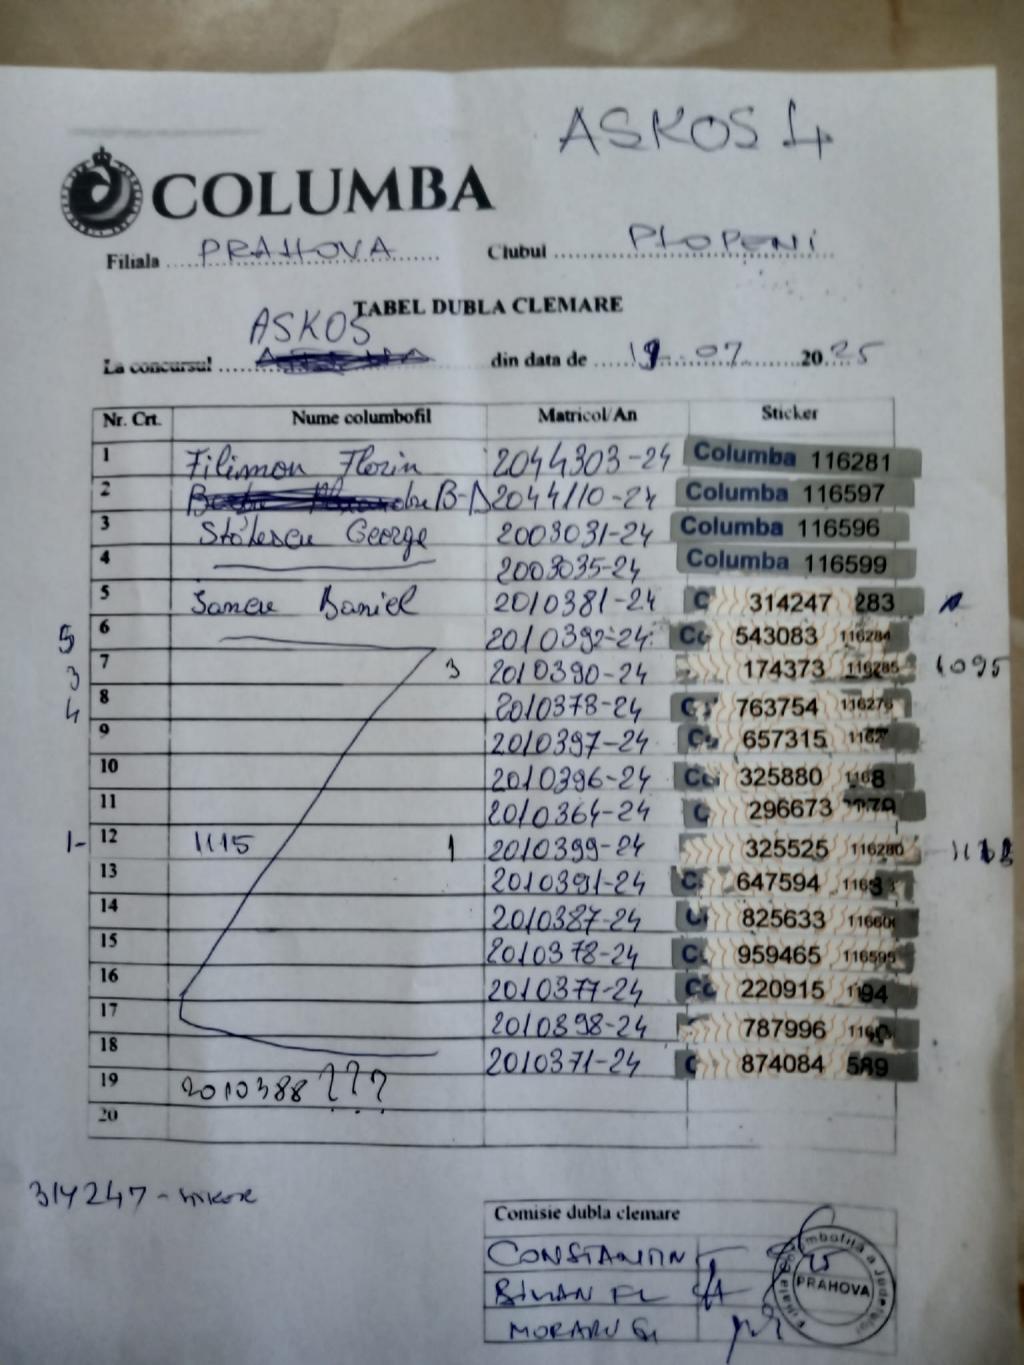 ASKOS 4
COLUMBA
Filiala PRAHOVA Clubul PLOPENI
TABEL DUBLA CLEMARE
ASKOS
La concursul din data de 19.07 2025
Nr. Crt. Nume columbofil Matricol/An Sticker
1 Filimon Florin 2044303-24 Columba 116281
2 B-A 2044110-24 Columba 116597
3 Stătescu George 2003031-24 Columba 116596
4 2003035-24 Columba 116599
5 Sancu Daniel 2010381-24 C 314247 283
5 6 2010392-24 Co 543083 116284
3 7 3 2010390-24 174373 116285 1095
4 8 2010373-24 763754 116276
9 2010397-24 657315
10 2010396-24 325880
11 2010364-24 C 296673
1- 12 1115 1 2010399-24 325525 116280
13 2010391-24 647594
14 2010387-24 825633
15 2010378-24 959465 116595
16 2010377-24 220915
17 2010398-24 787996
18 2010371-24 874084 589
19 2010388 ???
20
314247 -
Comisie dubla clemare
CONSTANTIN
BIVAN FL
MORARU G
PRAHOVA